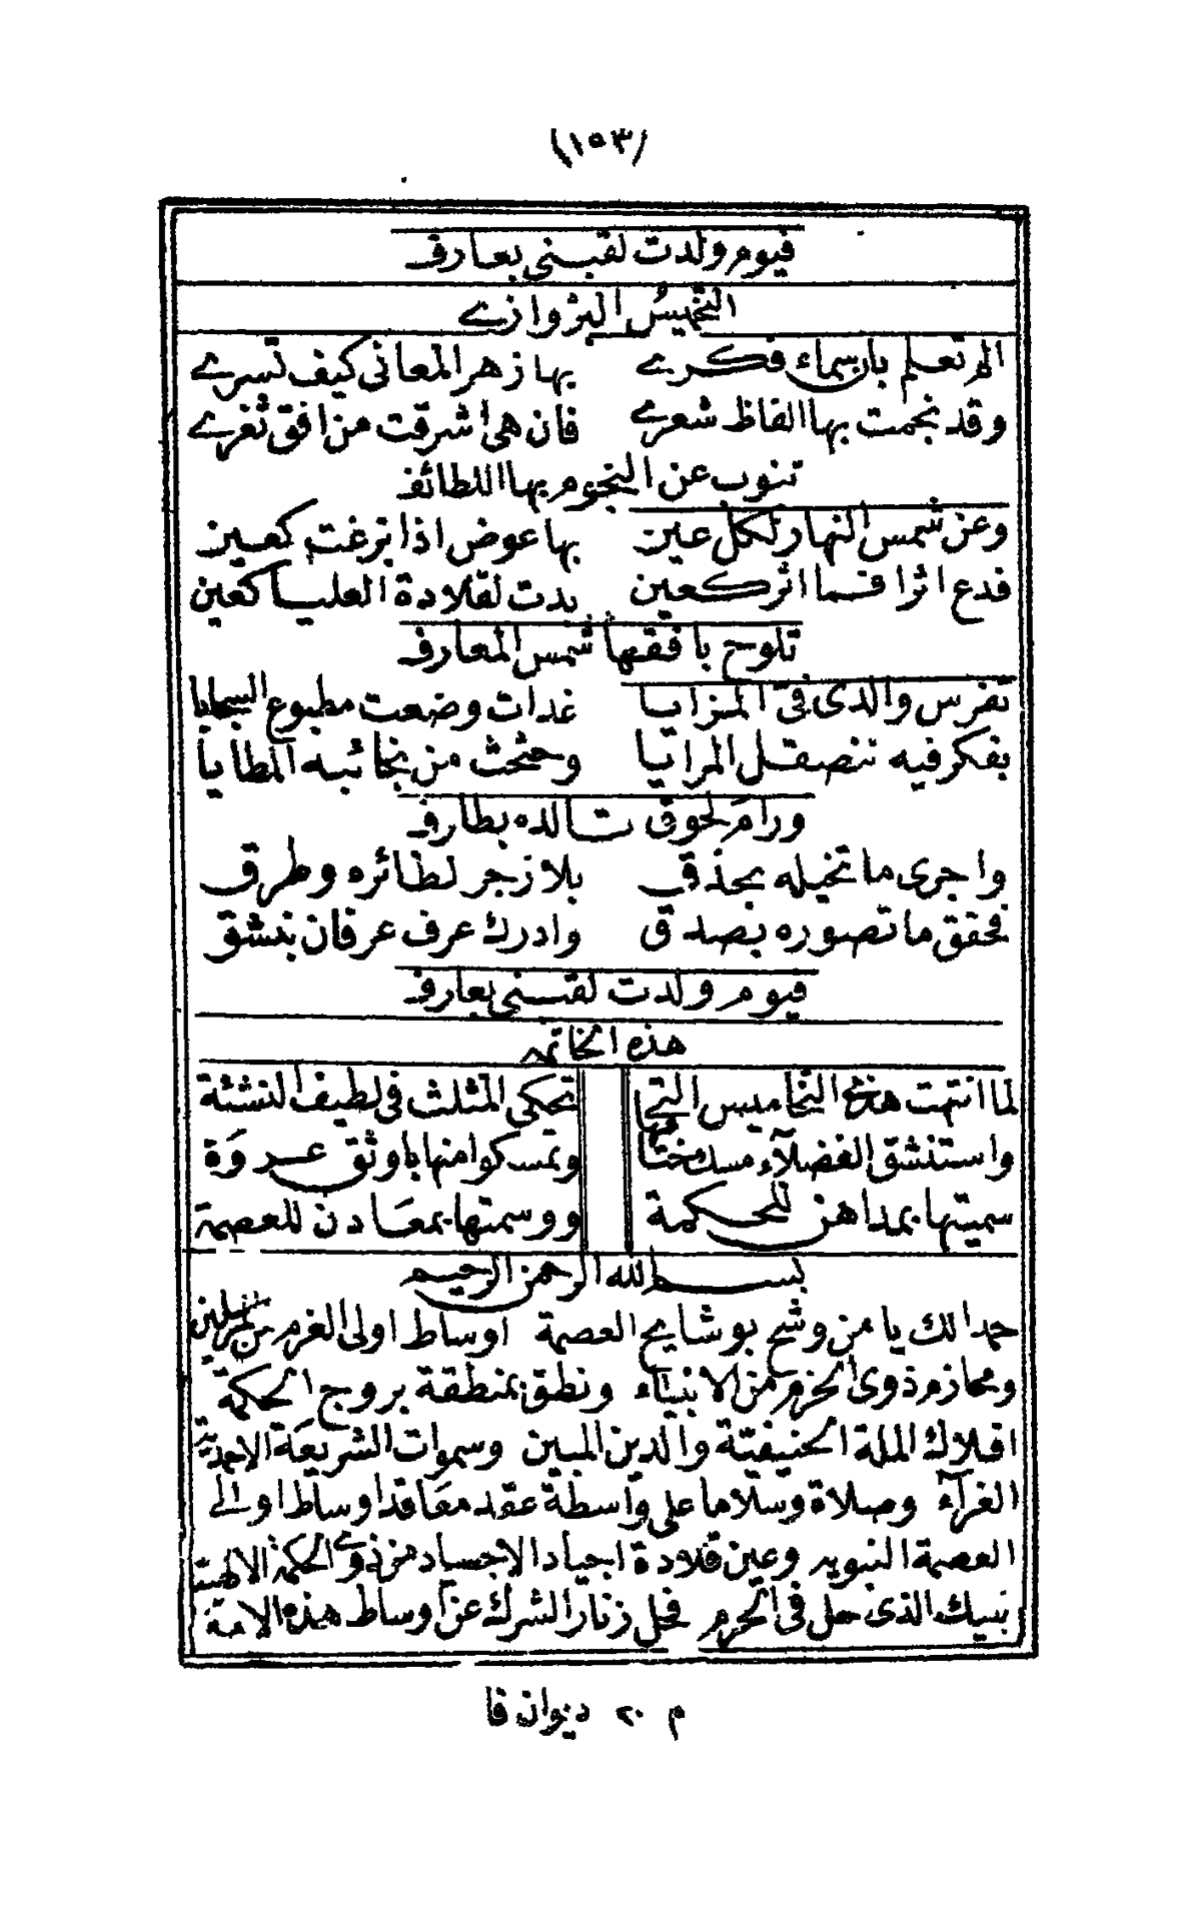 (١٥٣)
فيوم ولدت لقبني بعارف
التخميس البزوازي
الم تعلم بان سماء فكري بها زهر المعاني كيف تسري
وقد نجمت بها الفاظ شعري فان هي اشرقت من افق ثغري
تنوب عن النجوم بها اللطائف
وعن شمس النهار لكل عين بها عوض اذا بزغت كعين
فدع اثرا فما اثر كعين بدت لقلادة العليا كعين
تلوح بافقها شمس المعارف
تفرس والدي في المزايا غدات وضعت مطبوع السجايا
بفكر فيه تنصقل المرايا وحثحث من نجائبه المطايا
ورام لحوق تالده بطارف
واجرى ما تخيله بحذق بلا زجر لطائره وطرق
فحقق ما تصوره بصدق وادرك عرف عرفان بنشق
فيوم ولدت لقبني بعارف
هذه الخاتمه
لما انتهت هذي التخاميس التي تحكي المثلث في لطيف النشئة
واستنشق الفضلاء مسك ختامها وتمسكوا منها باوثق عروة
سميتها بمداهن للحكمة ووسمتها بمعادن للعصمة
بسم الله الرحمن الرحيم
حمدا لك يا من وشح بوشايح العصمة اوساط اولى العزم من المرسلين
ومحازم ذوى الحزم من الانبياء ونطق بمنطقة بروج الحكمة
افلاك الملة الحنيفية والدين المبين وسموات الشريعة الاحمدية
الغرآء وصلاة وسلاما على واسطة عقد معاقد اوساط اولى
العصمة النبويه وعين قلادة اجياد الاجساد من ذوي الحكمة الالهية
نبيك الذى حل في الحرم فحل زنار الشرك عن اوساط هذه الامة
م ٢٠ ديوان فا